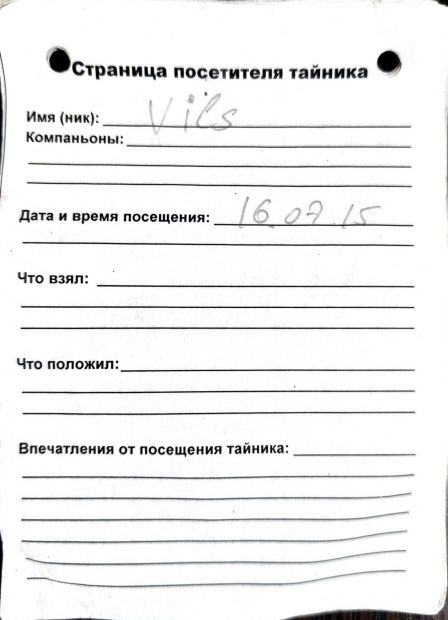 Страница посетителя тайника
Имя (ник): Vils
Компаньоны:
Дата и время посещения: 16.07.15
Что взял:
Что положил:
Впечатления от посещения тайника: